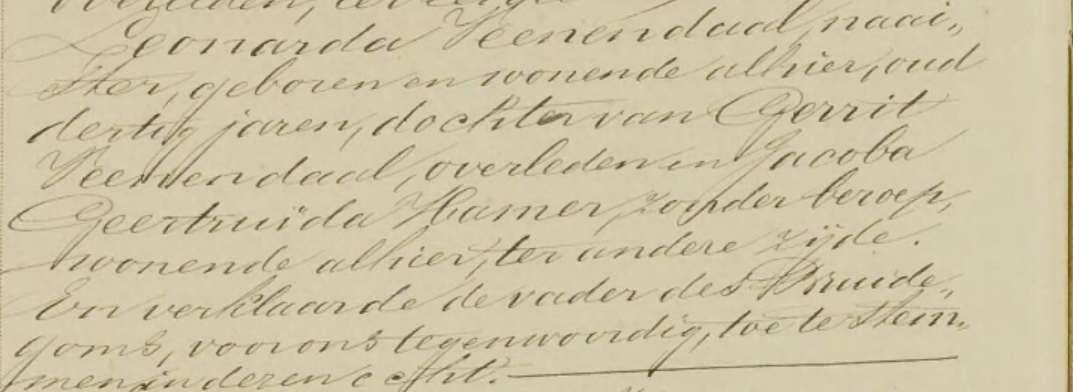 overleden, ter eenre
Leonarda Veenendaal, naai„
ster, geboren en wonende alhier, oud
dertig jaren, dochter van Gerrit
Veenendaal, overleden en Jacoba
Geertruida Hamer, zonder beroep,
wonende alhier, ter andere zijde.
En verklaarde de vader des Bruide„
goms, voor ons tegenwoordig, toe te stem„
men in deren echt.